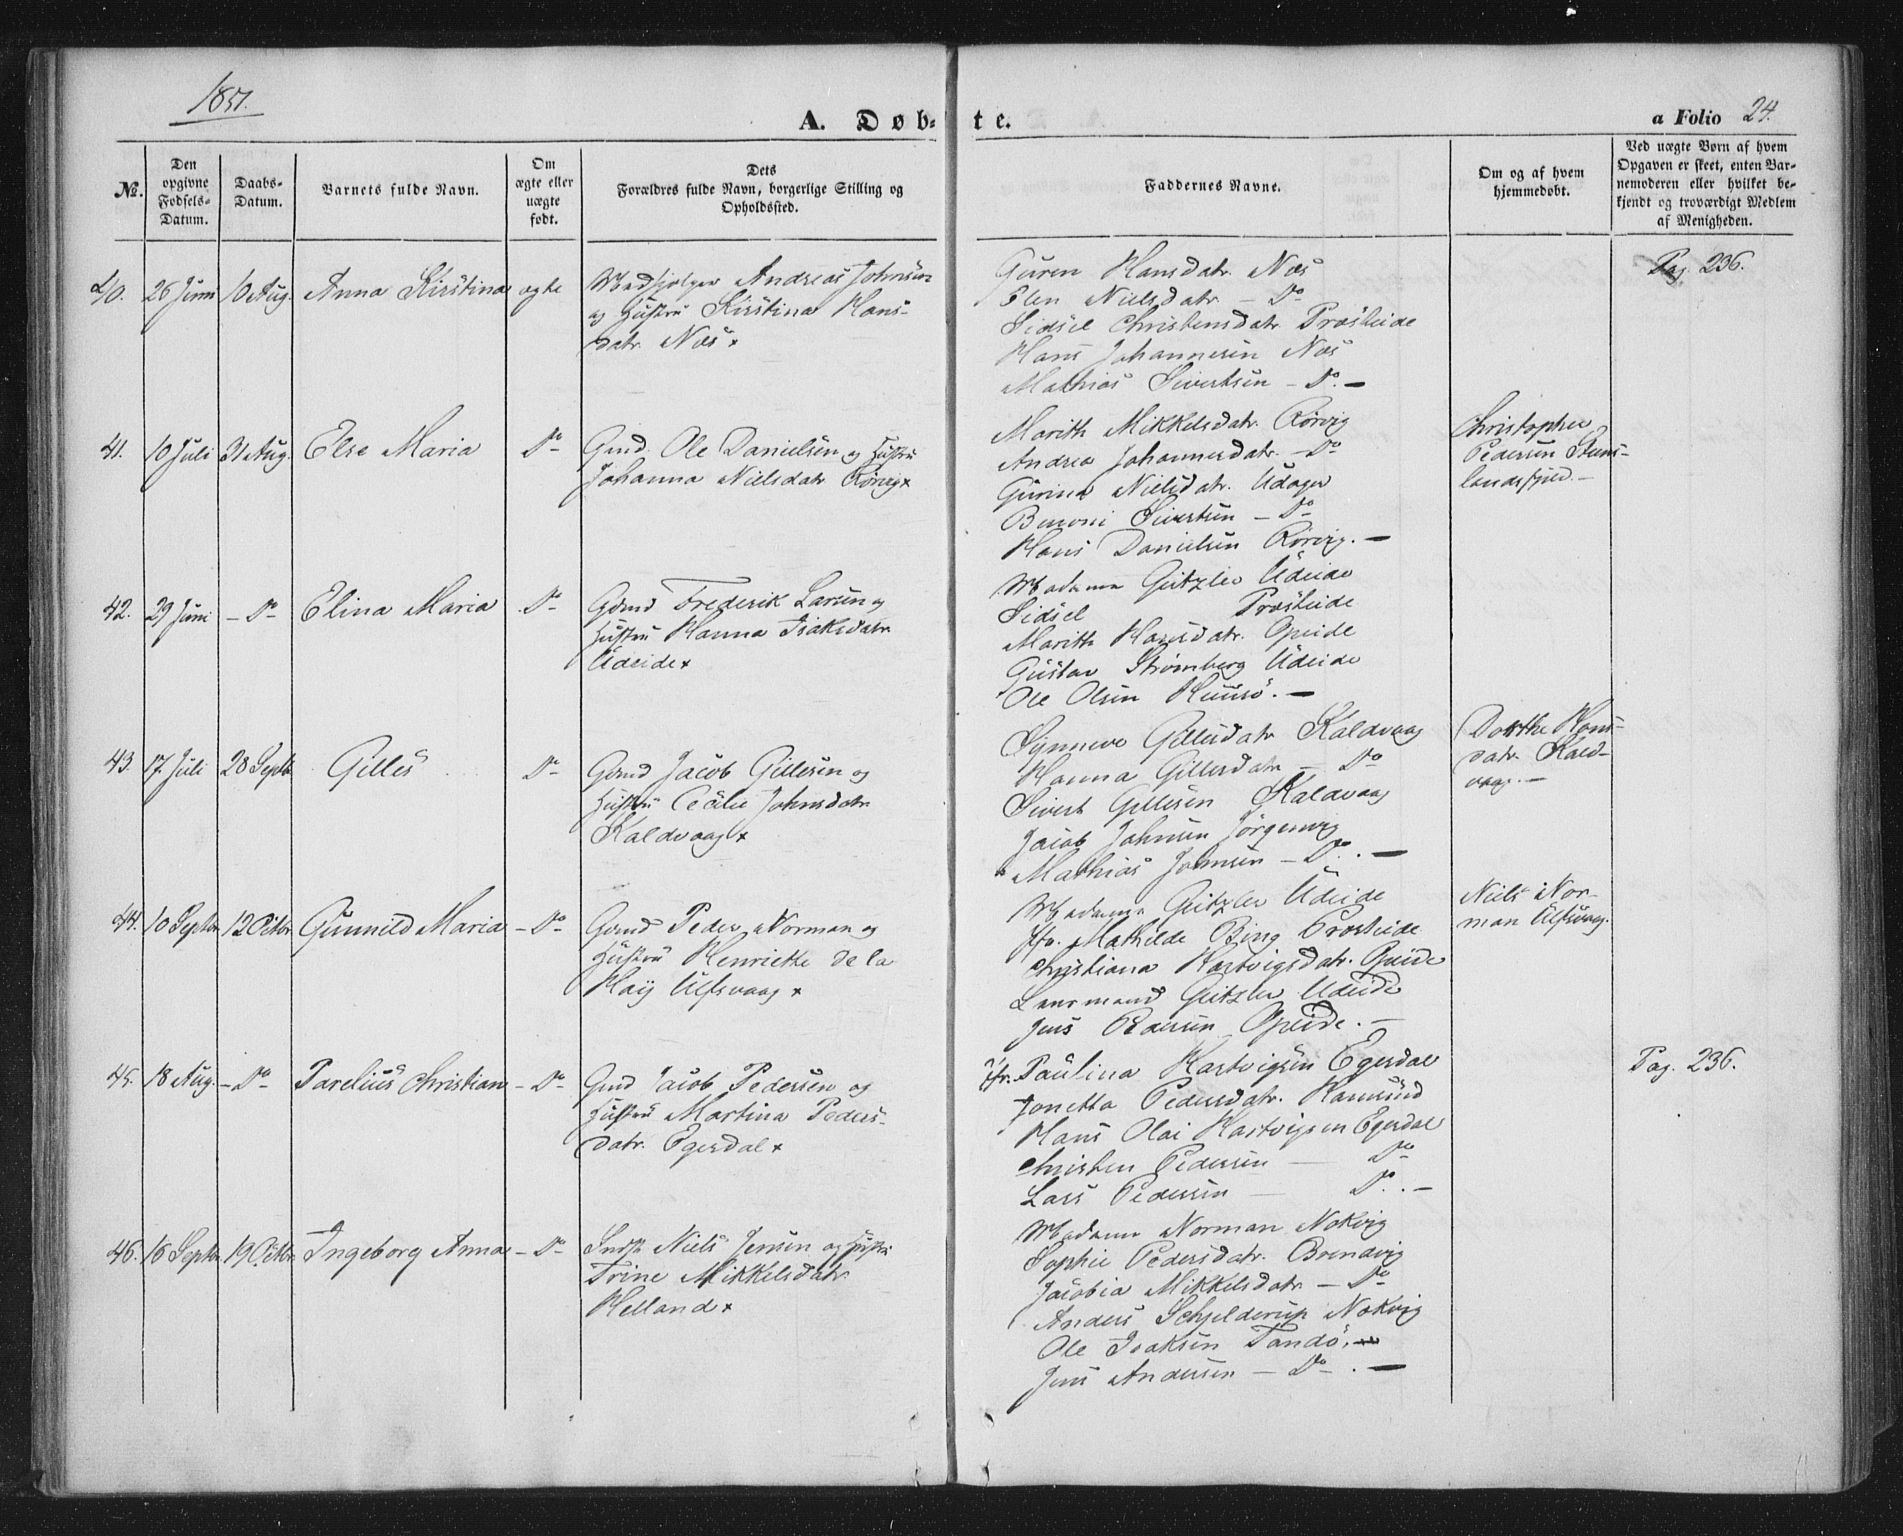 1851.
A. Døb-
te.
a Folio 24.
No.
Den opgivne Fødsels-Datum.
Daabs-Datum.
Barnets fulde Navn.
Om ægte eller uægte født.
Dets
Forældres fulde Navn, borgerlige Stilling og
Opholdssted.
Faddernes Navne.
Om og af hvem
hjemmedøbt.
Ved uægte Børn af hvem
Opgaven er skeet, enten Bar-
nemoderen eller hvilket be-
kjendt og troværdigt Medlem
af Menigheden.
40. 26 Juni 10 Aug. Anna Kirstina ægte
Medhjelper Andreas Johnsen
og Hustru Kirstina Hans-
datr Næs
Guren Hansdatr. Næs
Elen Nielsdatr - Do
Sidsel Christensdatr Præsteide
Hans Johannesen Næs
Mathias Sivertsen - Do. -
Pag. 236.
41. 10 Juli 31 Aug. Else Maria Do
Gmd. Ole Danielsen og Hustru
Johanna Nielsdatr Rørvig
Marith Mikkelsdatr. Rørvig
Andrea Johannesdatr. - Do
Gurina Nielsdatr. Udager
Benoni Sivertsen - Do
Hans Danielsen Rørvig. -
Christopher
Pedersen
landsfjeld. -
42. 29 Juni - Do - Elina Maria Do
Gmd Frederik Larsen og
Hustru Hanna Isaksdatr
Udeide
Madame Geitzler Udeide
Sidsel Præsteide
Marith Hansdatr. Opeide
Gustav Strømberg Udeide
Ole Olsen -
43. 17 Juli 28 Septbr Gilles Do
Gmd Jacob Gillesen og
Hustru Cecilie Johnsdatr
Kaldvaag
Synneve Gillesdatr Kaldvaag
Hanna Gillesdatr - Do
Sivert Gillesen Kaldvaag
Jacob Johnsen Jørgenvig
Mathias Johnsen - Do. -
Dorthe Hans-
datr. Kald-
vaag. -
44. 10 Septbr 12 Octbr Gunnild Maria - Do
Gmd Peder Norman og
Hustru Henriette de la
Haij Ulfsvaag
Madame Geitzler Udeide
Jfr. Mathilde Bing Præsteide
Christiana Hartvigsdatr. Opeide
Lensmand Geitzler Udeide
Jens Pedersen Opeide. -
Niels Nor-
man Ulfsvaag.
45. 18 Aug. - Do - Parelius Christian - Do
Gmd Jacob Pedersen og
Hustru Martina Peders-
datr. Egesdal
Jfr. Paulina Hartvigsen Egesdal
Jonetta Pedersdatr. Hamsund
Hans Olai Hartvigsen Egesdal
Christen Pedersen - Do
Lars Pedersen - Do. -
Pag. 236.
46. 16 Septbr 19 Octbr Ingeborg Anna - Do
Indst Niels Jensen og Hustru
Trine Mikkelsdatr
Helland
Madame Norman Nokvig
Sophie Pedersdatr. Brendvig
Jacobia Mikkelsdatr - Do
Anders Schjelderup Nokvig
Ole Isaksen Tandø. -
Jens Andersen - Do. -